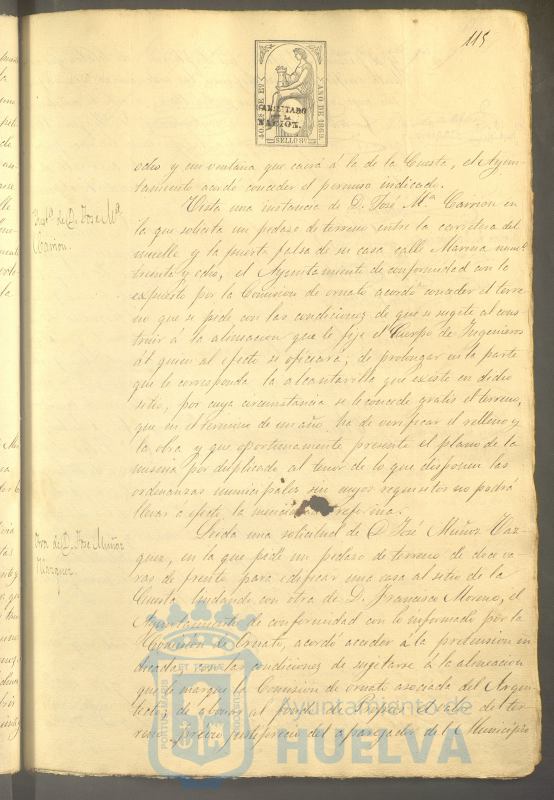 115
40 CS DE EO
AÑO DE 1869
HABILITADO
POR LA
NACION.
SELLO 9º
ocho y una ventana que caerá á la de la Cuesta, el Ayun-
tamiento acordó conceder el permiso indicado.
Inst.ª de D. Jose M.ª
Carrion.
Vista una instancia de D. José M.ª Carrion en
la que solicita un pedazo de terreno entre la carretera del
muelle y la puerta falsa de su casa calle Marina num.º
treinta y ocho, el Ayuntamiento de conformidad con lo
expuesto por la Comision de ornato acordó conceder el terre
no que se pide con las condiciones de que se sugete al cons
truir á la alineacion que le fije el Cuerpo de Ingenieros
al quien al efecto se oficiará; de prolongar en la parte
que le corresponda la alcantarilla que existe en dicho
sitio, por cuya circunstancia se le concede gratis el terreno,
que en el término de un año ha de verificar el relleno y
la obra y que oportunamente presente el plano de la
misma por duplicado al tenor de lo que disponen las
ordenanzas municipales sin cuyos requisitos no podrá
llevar a efecto la mencionada reforma.
Otra de D. Jose Muñoz
Vazquez.
Leida una solicitud de D. José Muñoz Vaz-
quez, en la que pide un pedazo de terreno de doce va
ras de frente para edificar una casa al sitio de la
Cuesta lindando con otra de D. Francisco Moreno, el
Ayuntamiento de conformidad con lo informado por la
Comision de Ornato, acordó acceder á la pretension in
dicada con las condiciones de sugetarse á la alineacion
que le marque la Comision de ornato asociada del Arqui-
tecto; de abonar al fondo de Propios el valor del ter
reno previo justiprecio del aparejador del Municipio
Ayuntamiento de
HUELVA